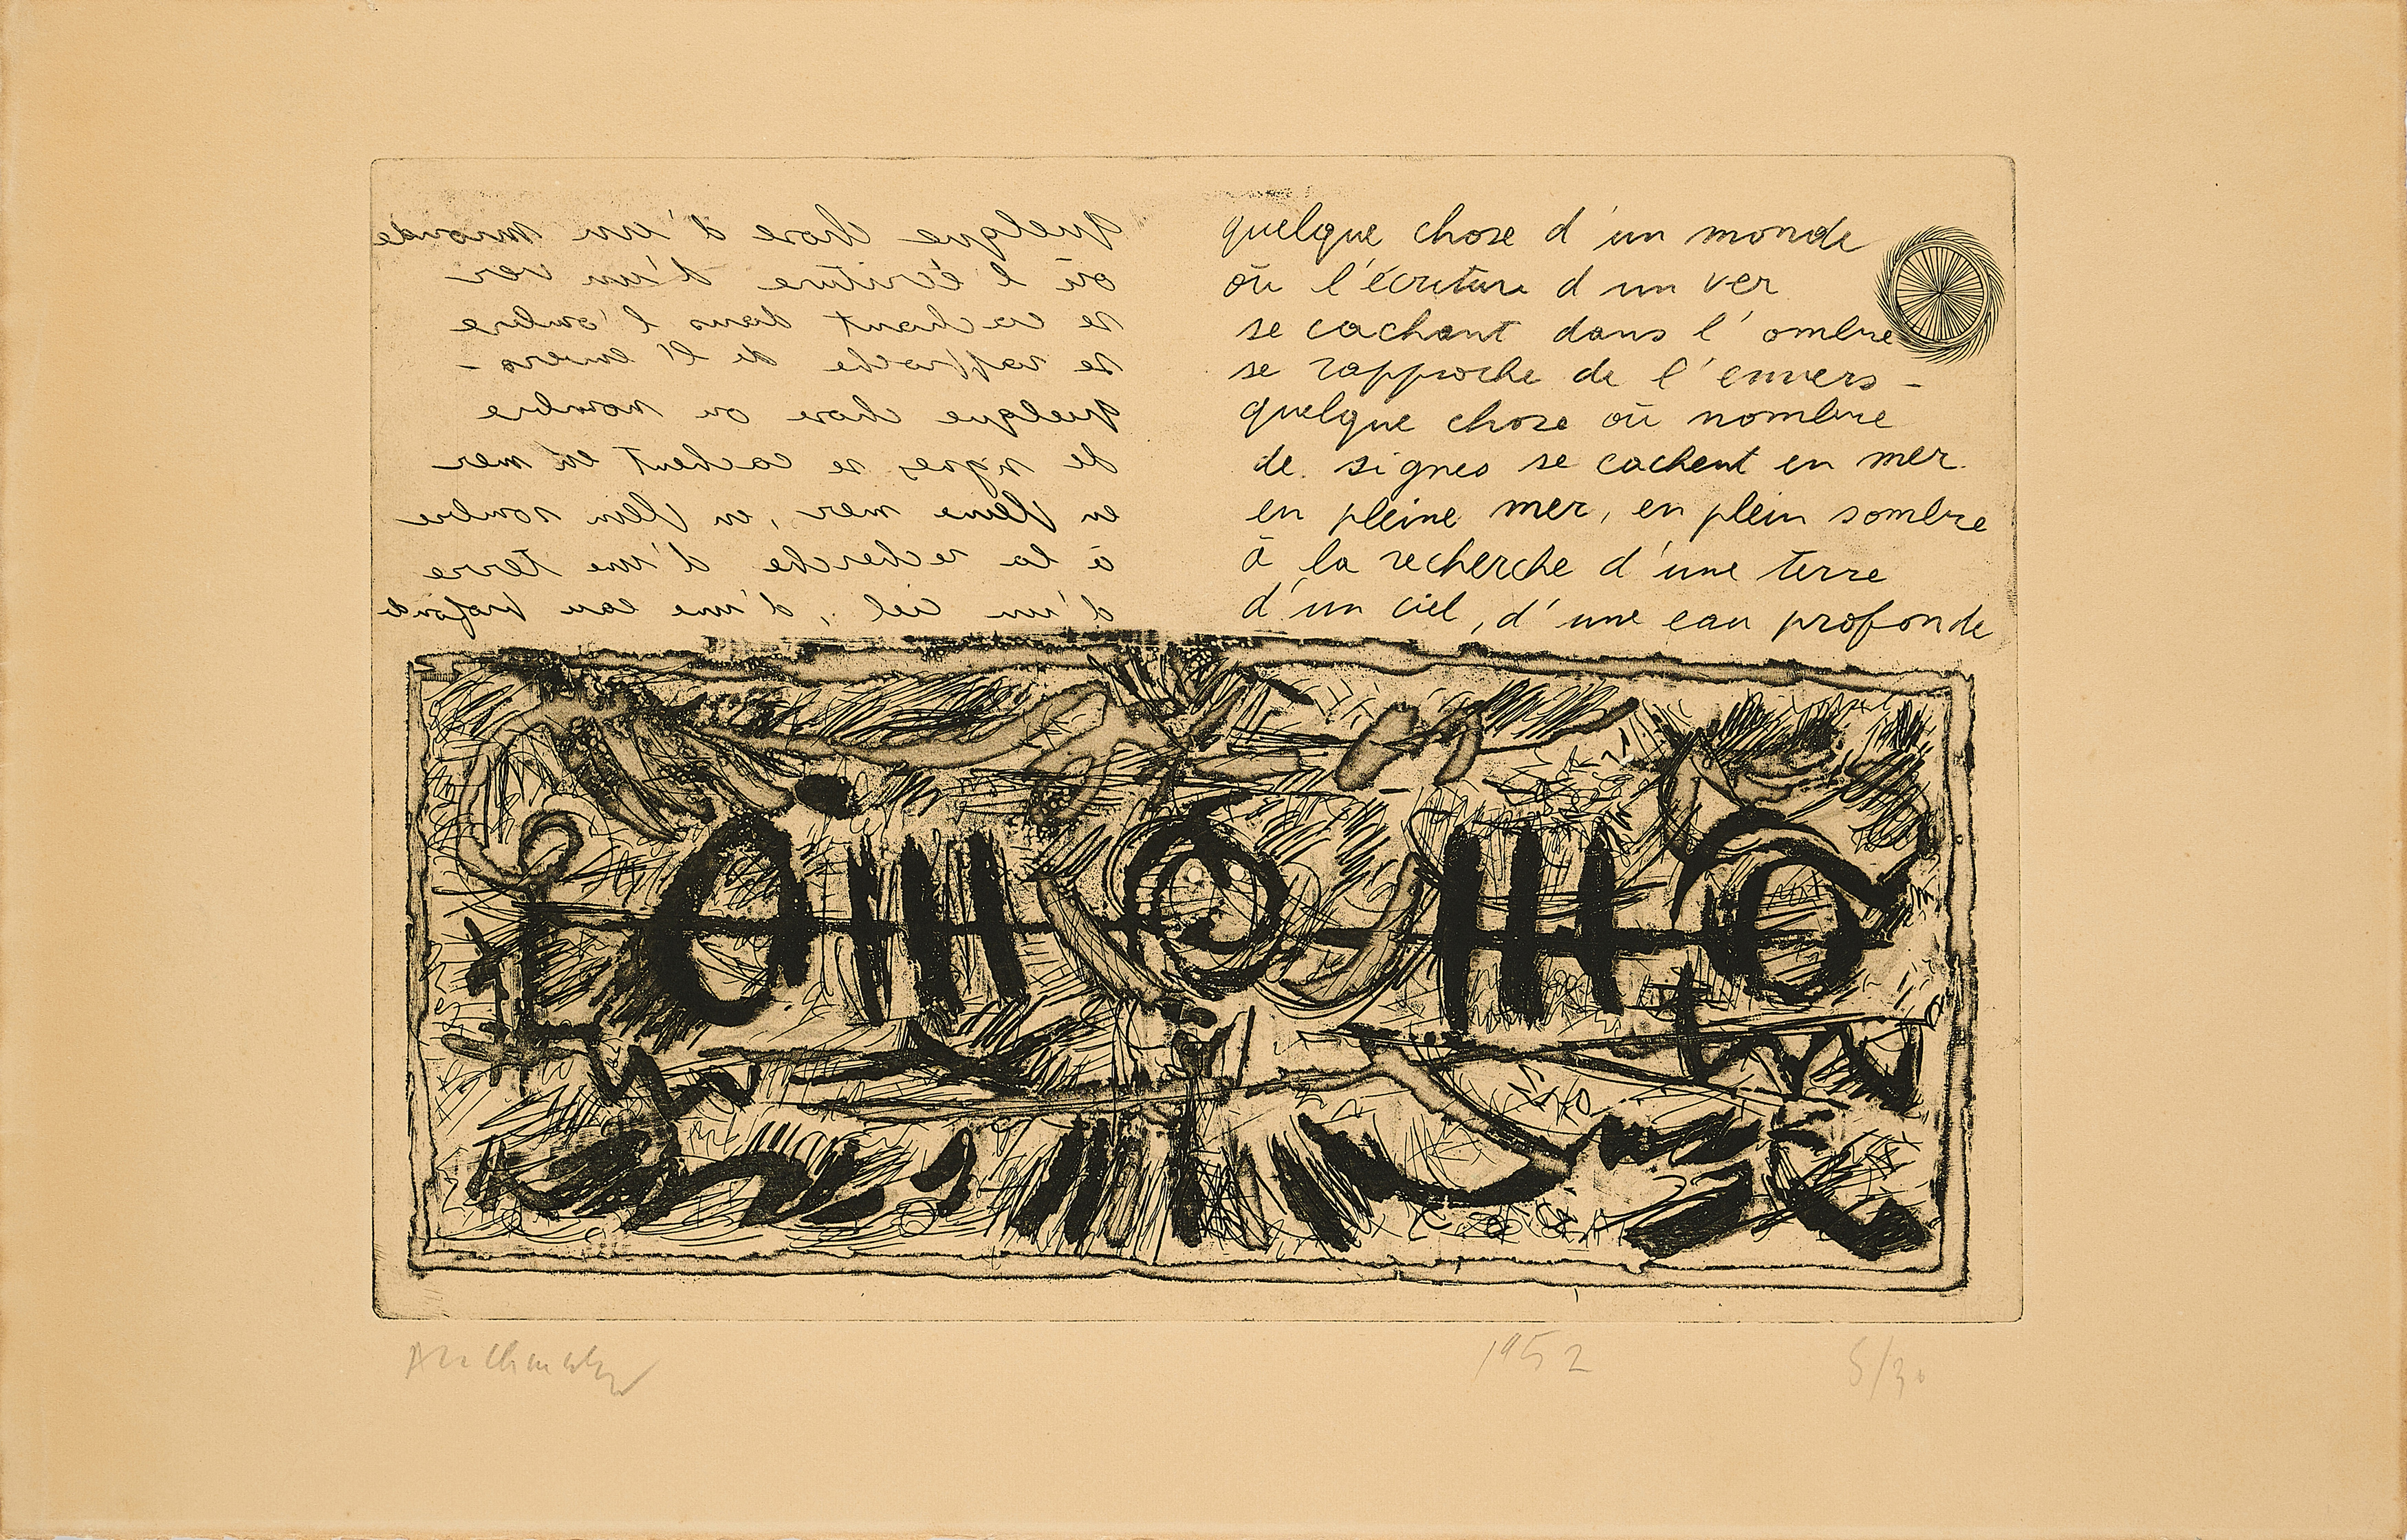 quelque chose d'un monde
où l'écriture d'un ver
se cachant dans l'ombre
se rapproche de l'envers -
quelque chose ou nombre
de signes se cachent en mer
en pleine mer, en plein sombre
à la recherche d'une terre
d'un ciel, d'une eau profonde
quelque chose d'un monde
où l'écriture d'un ver
se cachant dans l'ombre
se rapproche de l'envers -
quelque chose où nombre
de signes se cachent en mer
en pleine mer, en plein sombre
à la recherche d'une terre
d'un ciel, d'une eau profonde
Alechinsky 1952 5/30